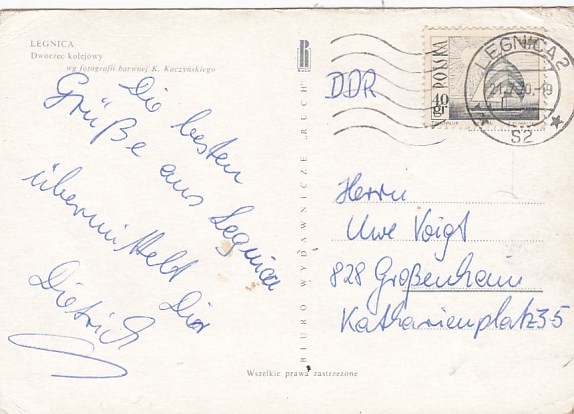 LEGNICA
Dworzec kolejowy
wg fotografii barwnej K. Kaczyńskiego
Die besten
Grüße aus Legnica
übermittelt Dir
Dietrich
BIURO WYDAWNICZE „RUCH"
R
DDR
POLSKA
10 gr
LEGNICA 2
21.7.70.-19
S2
Herrn
Uwe Voigt
828 Großenhain
Katharienplatz 3-5
Wszelkie prawa zastrzeżone